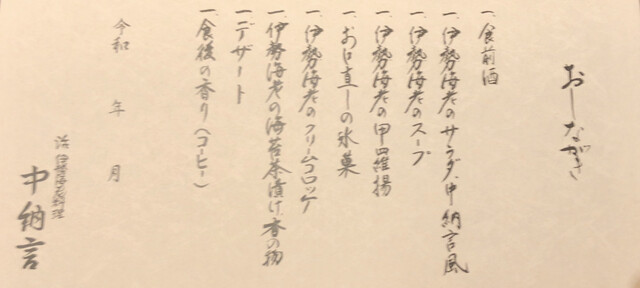 おしながき
一、食前酒
一、伊勢海老のサラダ、中納言風
一、伊勢海老のスープ
一、伊勢海老の甲羅揚
一、お口直しの氷菓
一、伊勢海老のクリームコロッケ
一、伊勢海老の海苔茶漬け、香の物
一、デザート
一、食後の香り（コーヒー）
令和 年 月
活伊勢海老料理
中納言